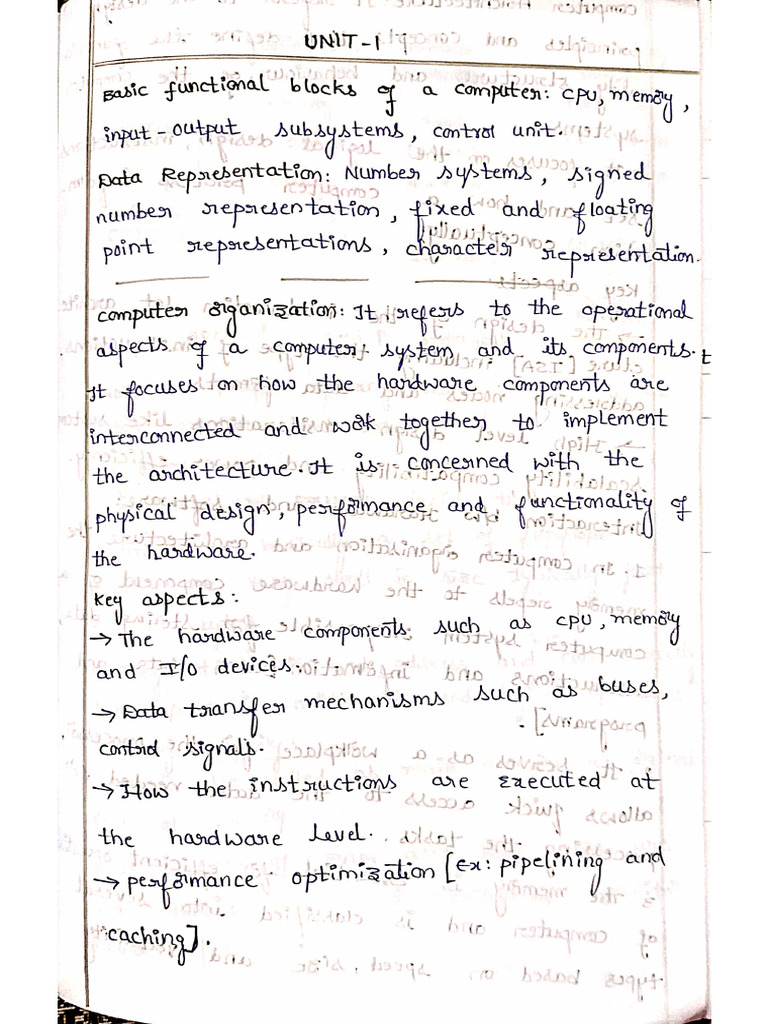 UNIT-1
Basic functional blocks of a computer: CPU, memory,
input-output subsystems, control unit.
Data Representation: Number systems, signed
number representation, fixed and floating
point representations, character representation.
computer organization: It refers to the operational
aspects of a computer system and its components.
It focuses on how the hardware components are
interconnected and work together to implement
the architecture. It is concerned with the
physical design, performance and functionality of
the hardware.
Key aspects:
→ The hardware components such as CPU, memory
and I/O devices.
→ Data transfer mechanisms such as buses,
control signals.
→ How the instructions are executed at
the hardware level.
→ performance optimization [Ex: pipelining and
caching].